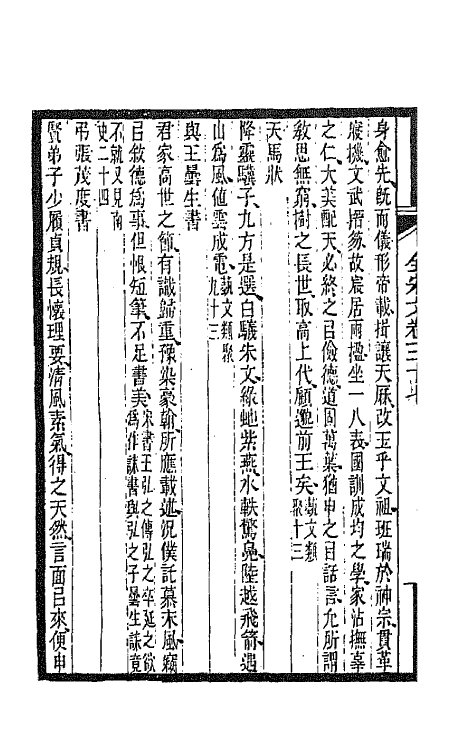 身愈先既而儀形帝載揖讓天厤改玉乎文祖班瑞於神宗貫革
寢機文武搢笏故宸居兩楹坐一八表國訓成均之學家沾撫辜
之仁大美配天必終之㠯儉德道固萬葉猶申之㠯話言允所謂
敘思無窮樹之長世取高上代顧邈前王矣藝文類聚十三
天馬狀
降靈驥子九方是選白驥朱文綠虵紫燕水軼驚鳧陸越飛箭遇
山爲風値雲成電藝文類聚九十三
與王曇生書
君家高世之節有識歸重豫染豪翰所應載述況僕託慕末風竊
㠯敘德爲事但恨短筆不足書美宋書王弘之傳弘之卒延之欲爲作誄書與弘之子曇生誄竟
不就又見南史二十四
弔張茂度書
賢弟子少履貞規長懷理要清風素氣得之天然言面㠯來便申
全宋文卷三十七